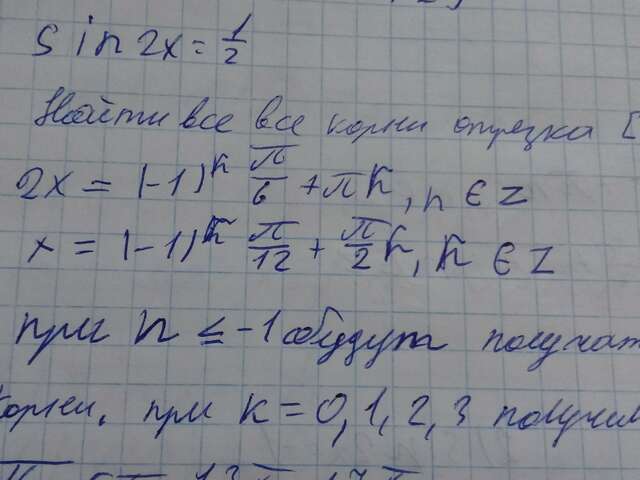 sin 2x = 1/2
Найти все все корни отрезка [
2x = (-1)^k π/6 + πk, n ∈ Z
x = (-1)^k π/12 + π/2 k, k ∈ Z
при n ≤ -1 будут получат
корни. при k = 0, 1, 2, 3 получим
13π 17π